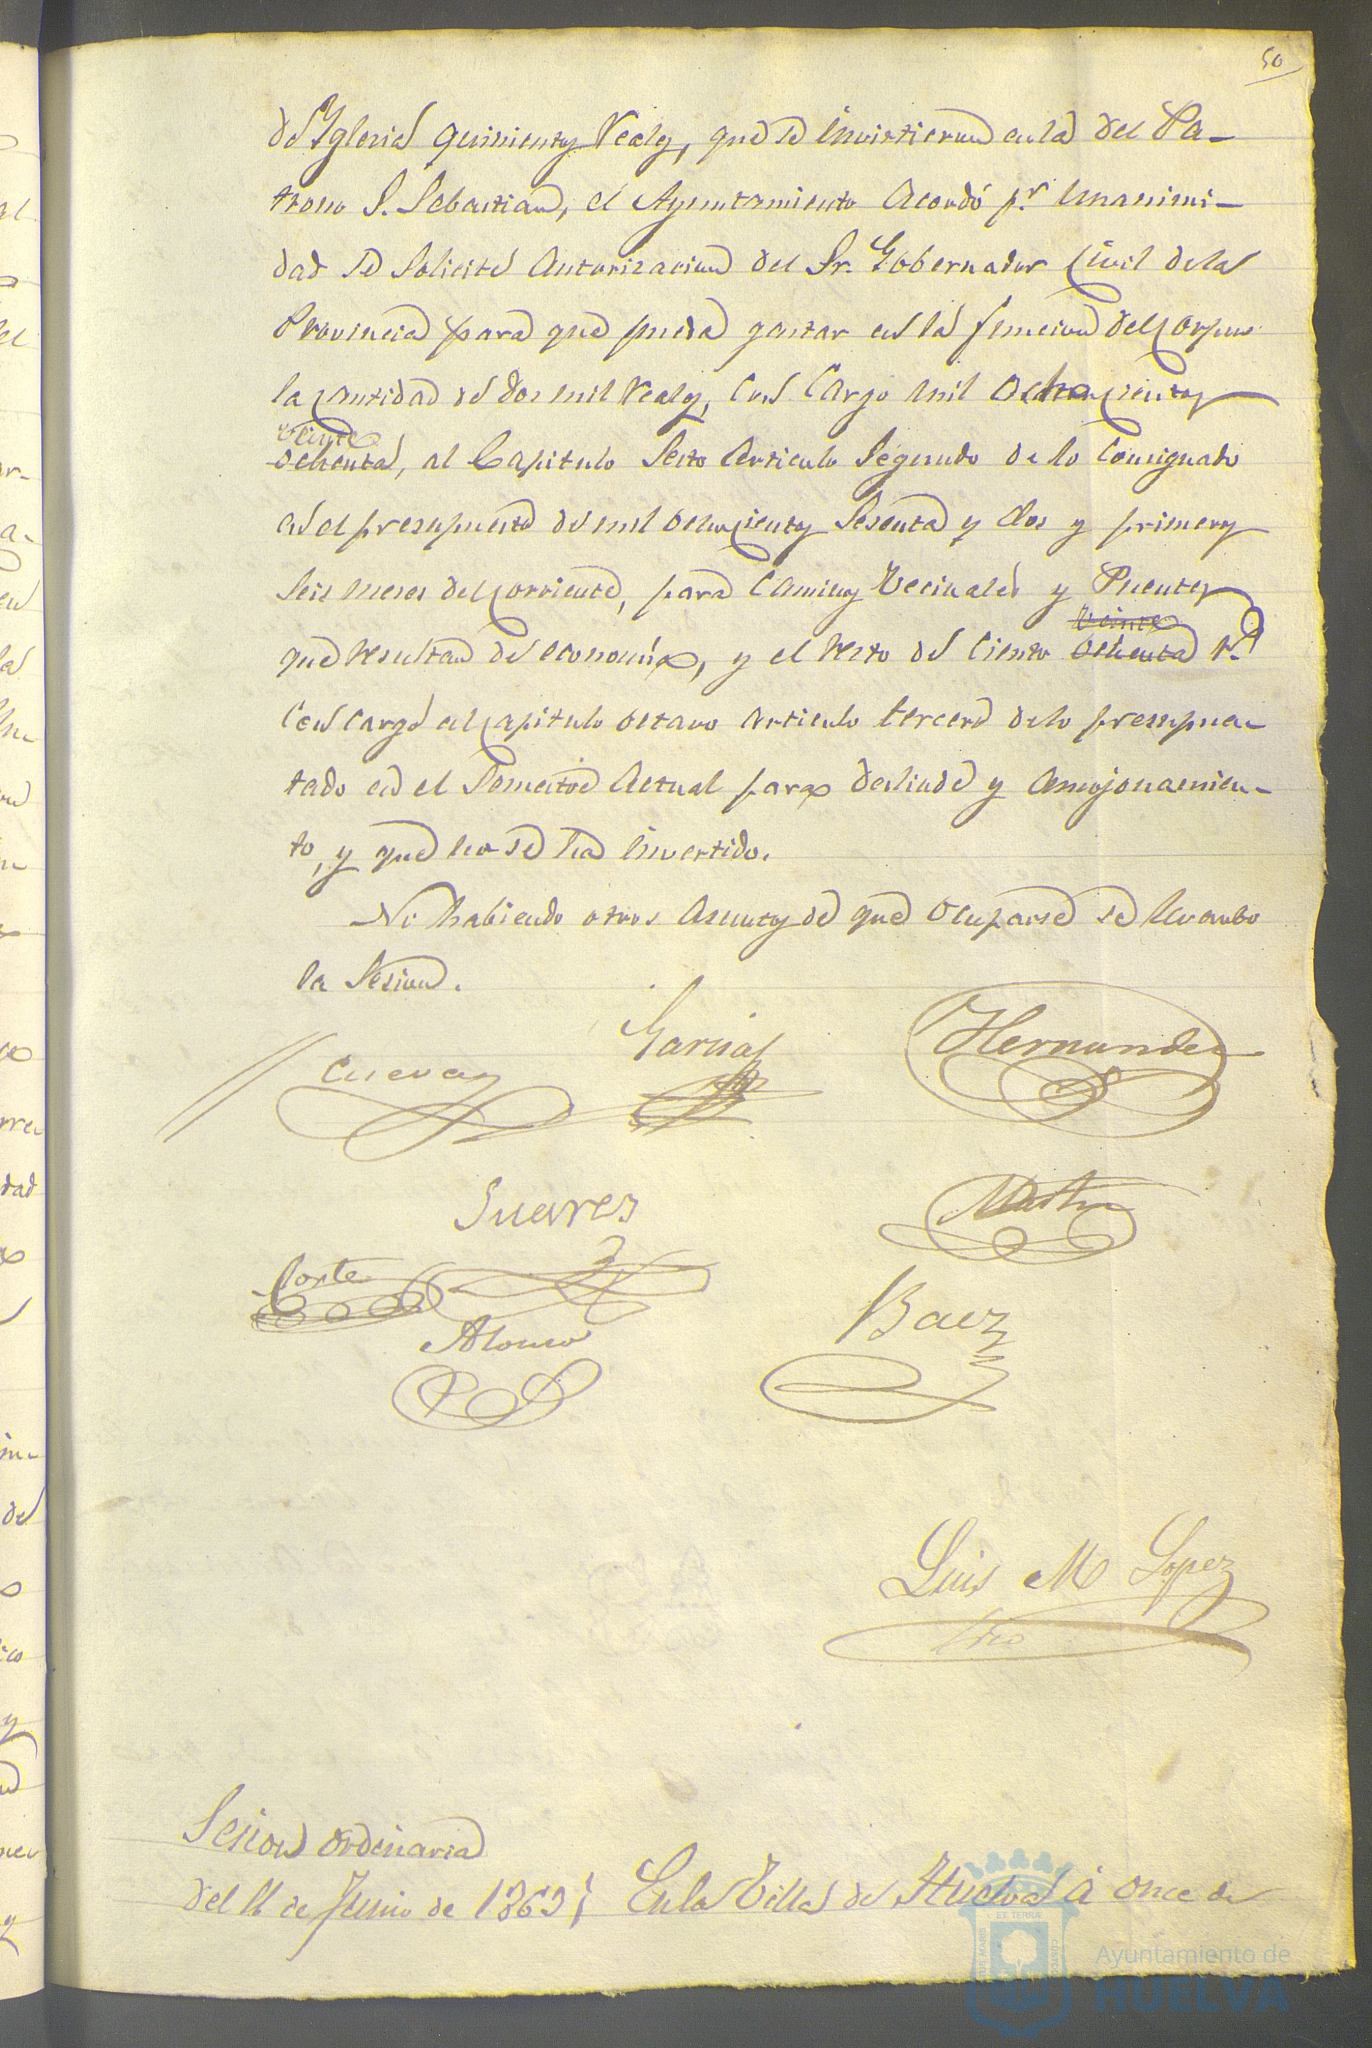 50
de Yglesia quinientos Reales, que se invirtieron en la del Pa-
trono S. Sebastian, el Ayuntamiento Acordó pr. Unanimi-
dad se Solicite Autorizacion del Sr. Gobernador Civil de la
Provincia para que pueda gastar en la funcion del Corpus
la cantidad de dos mil Reales, con Cargo mil Ochocientos
veinte
ochenta, al Capitulo Sesto Articulo Segundo de lo Consignado
en el presupuesto de mil ochocientos Sesenta y dos y primeros
seis meses del corriente, para Caminos Vecinales y Puentes
veinte
que resultan de economia, y el resto de Ciento ochenta rs.
con cargo al Capitulo octavo articulo tercero de lo presupues-
tado en el Semestre Actual para deslinde y Amojonamien-
to, y que no se ha invertido.
No habiendo otros Asuntos de que Ocuparse se levanto
la Sesion.
Cuevas
Garcia
Hernandez
Suarez
Martin
Corte
Alonso
Baez
Luis M Lopez
Srio
Sesion Ordinaria
del 11 de Junio de 1863
En la Villa de Huelva á once de
ET TERRÆ
Ayuntamiento de
HUELVA